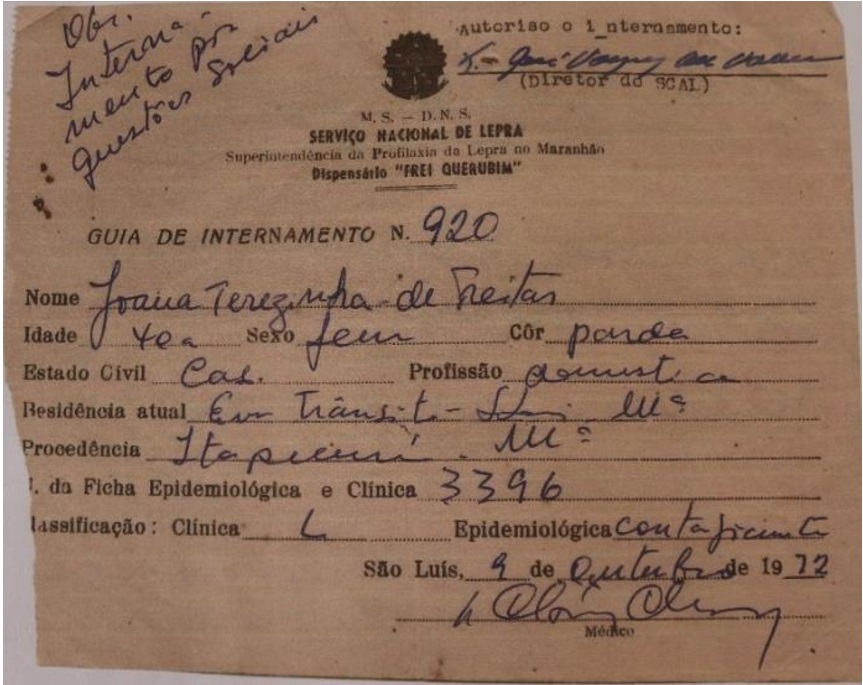 Obs.
Interna-
mento por
questões sociais
Autoriso o i_nternamento:
(Diretor do SCAL)
M. S. — D. N. S.
SERVIÇO NACIONAL DE LEPRA
Superintendência da Profilaxia da Lepra no Maranhão
Dispensário "FREI QUERUBIM"
GUIA DE INTERNAMENTO N. 920
Nome Joana Terezinha de Freitas
Idade Sexo fem Côr parda
Estado Civil Cas. Profissão domestica
Residência atual Em Trânsito - S. Luis Mª
Procedência Itapecurú - Mª
. da Ficha Epidemiológica e Clínica 3396
lassificação: Clínica L Epidemiológica contagiante
São Luís, 9 de Outubro de 1972
Médico